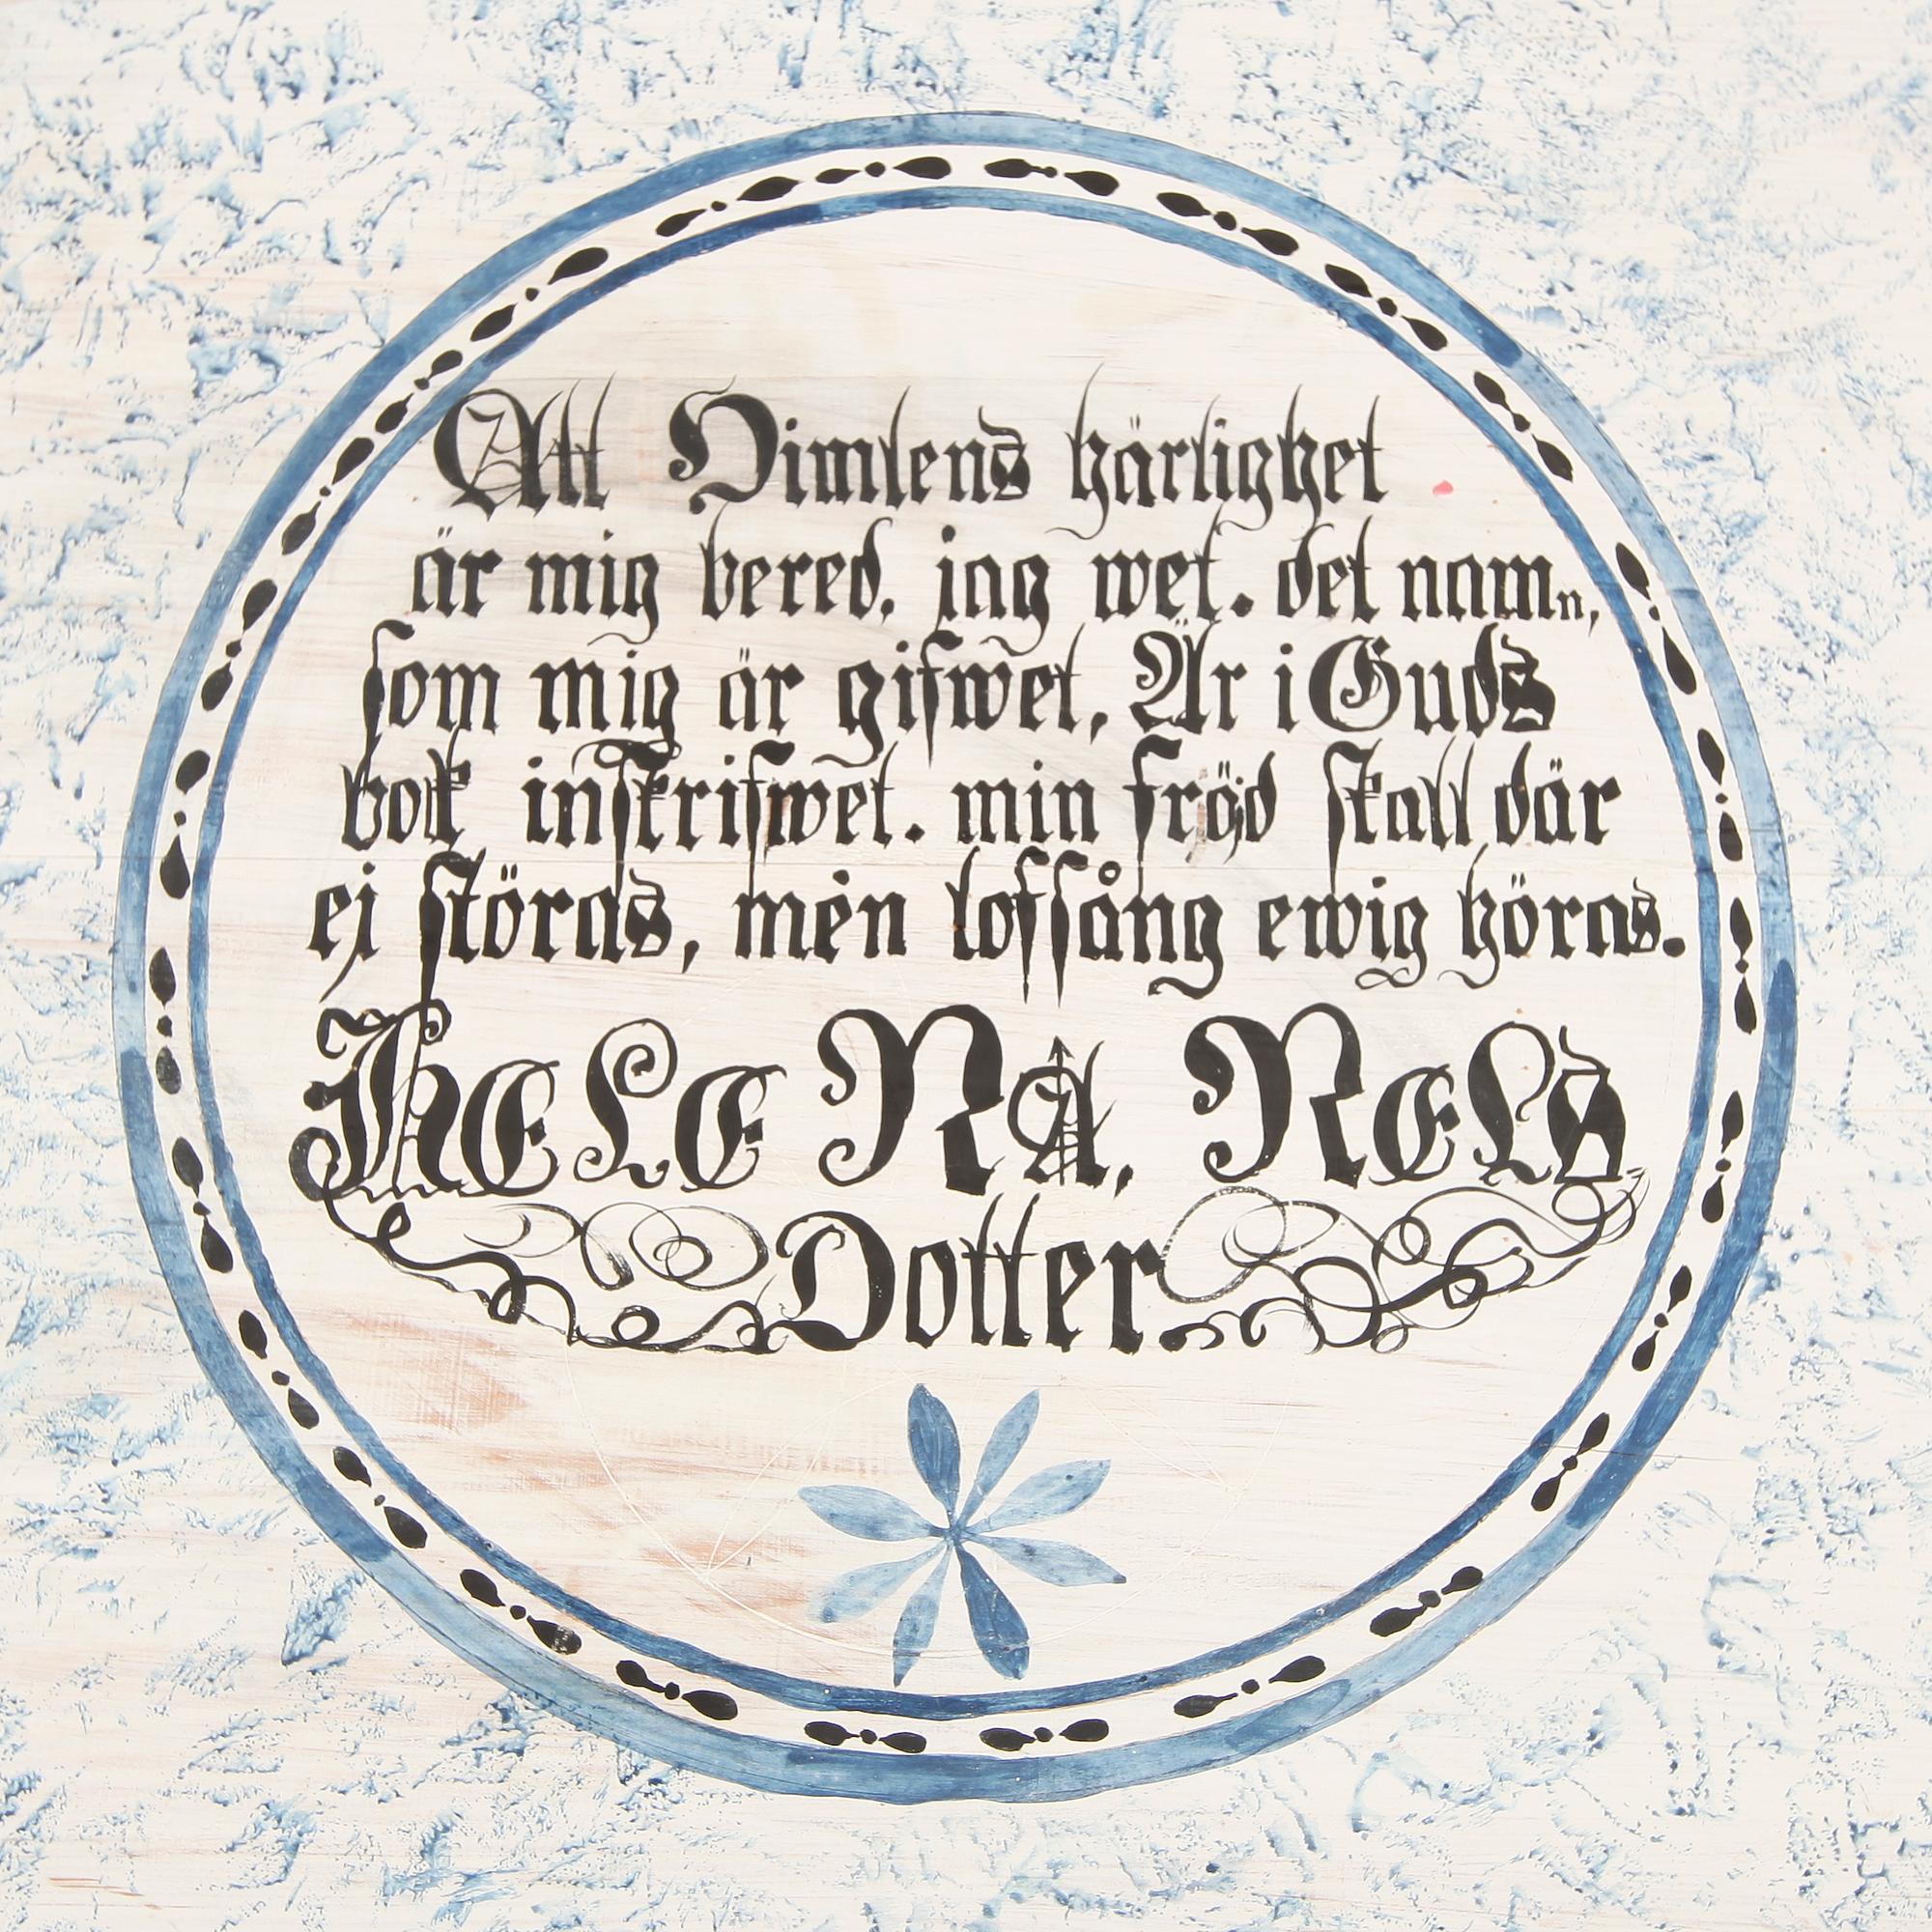 Att Himlens härlighet
är mig bered, jag wet. det namn,
som mig är gifwet, Är i Guds
bok inskrifwet. min fröjd skall där
ej störas, men lofsång ewig höras.
HELENA, NELS
Dotter